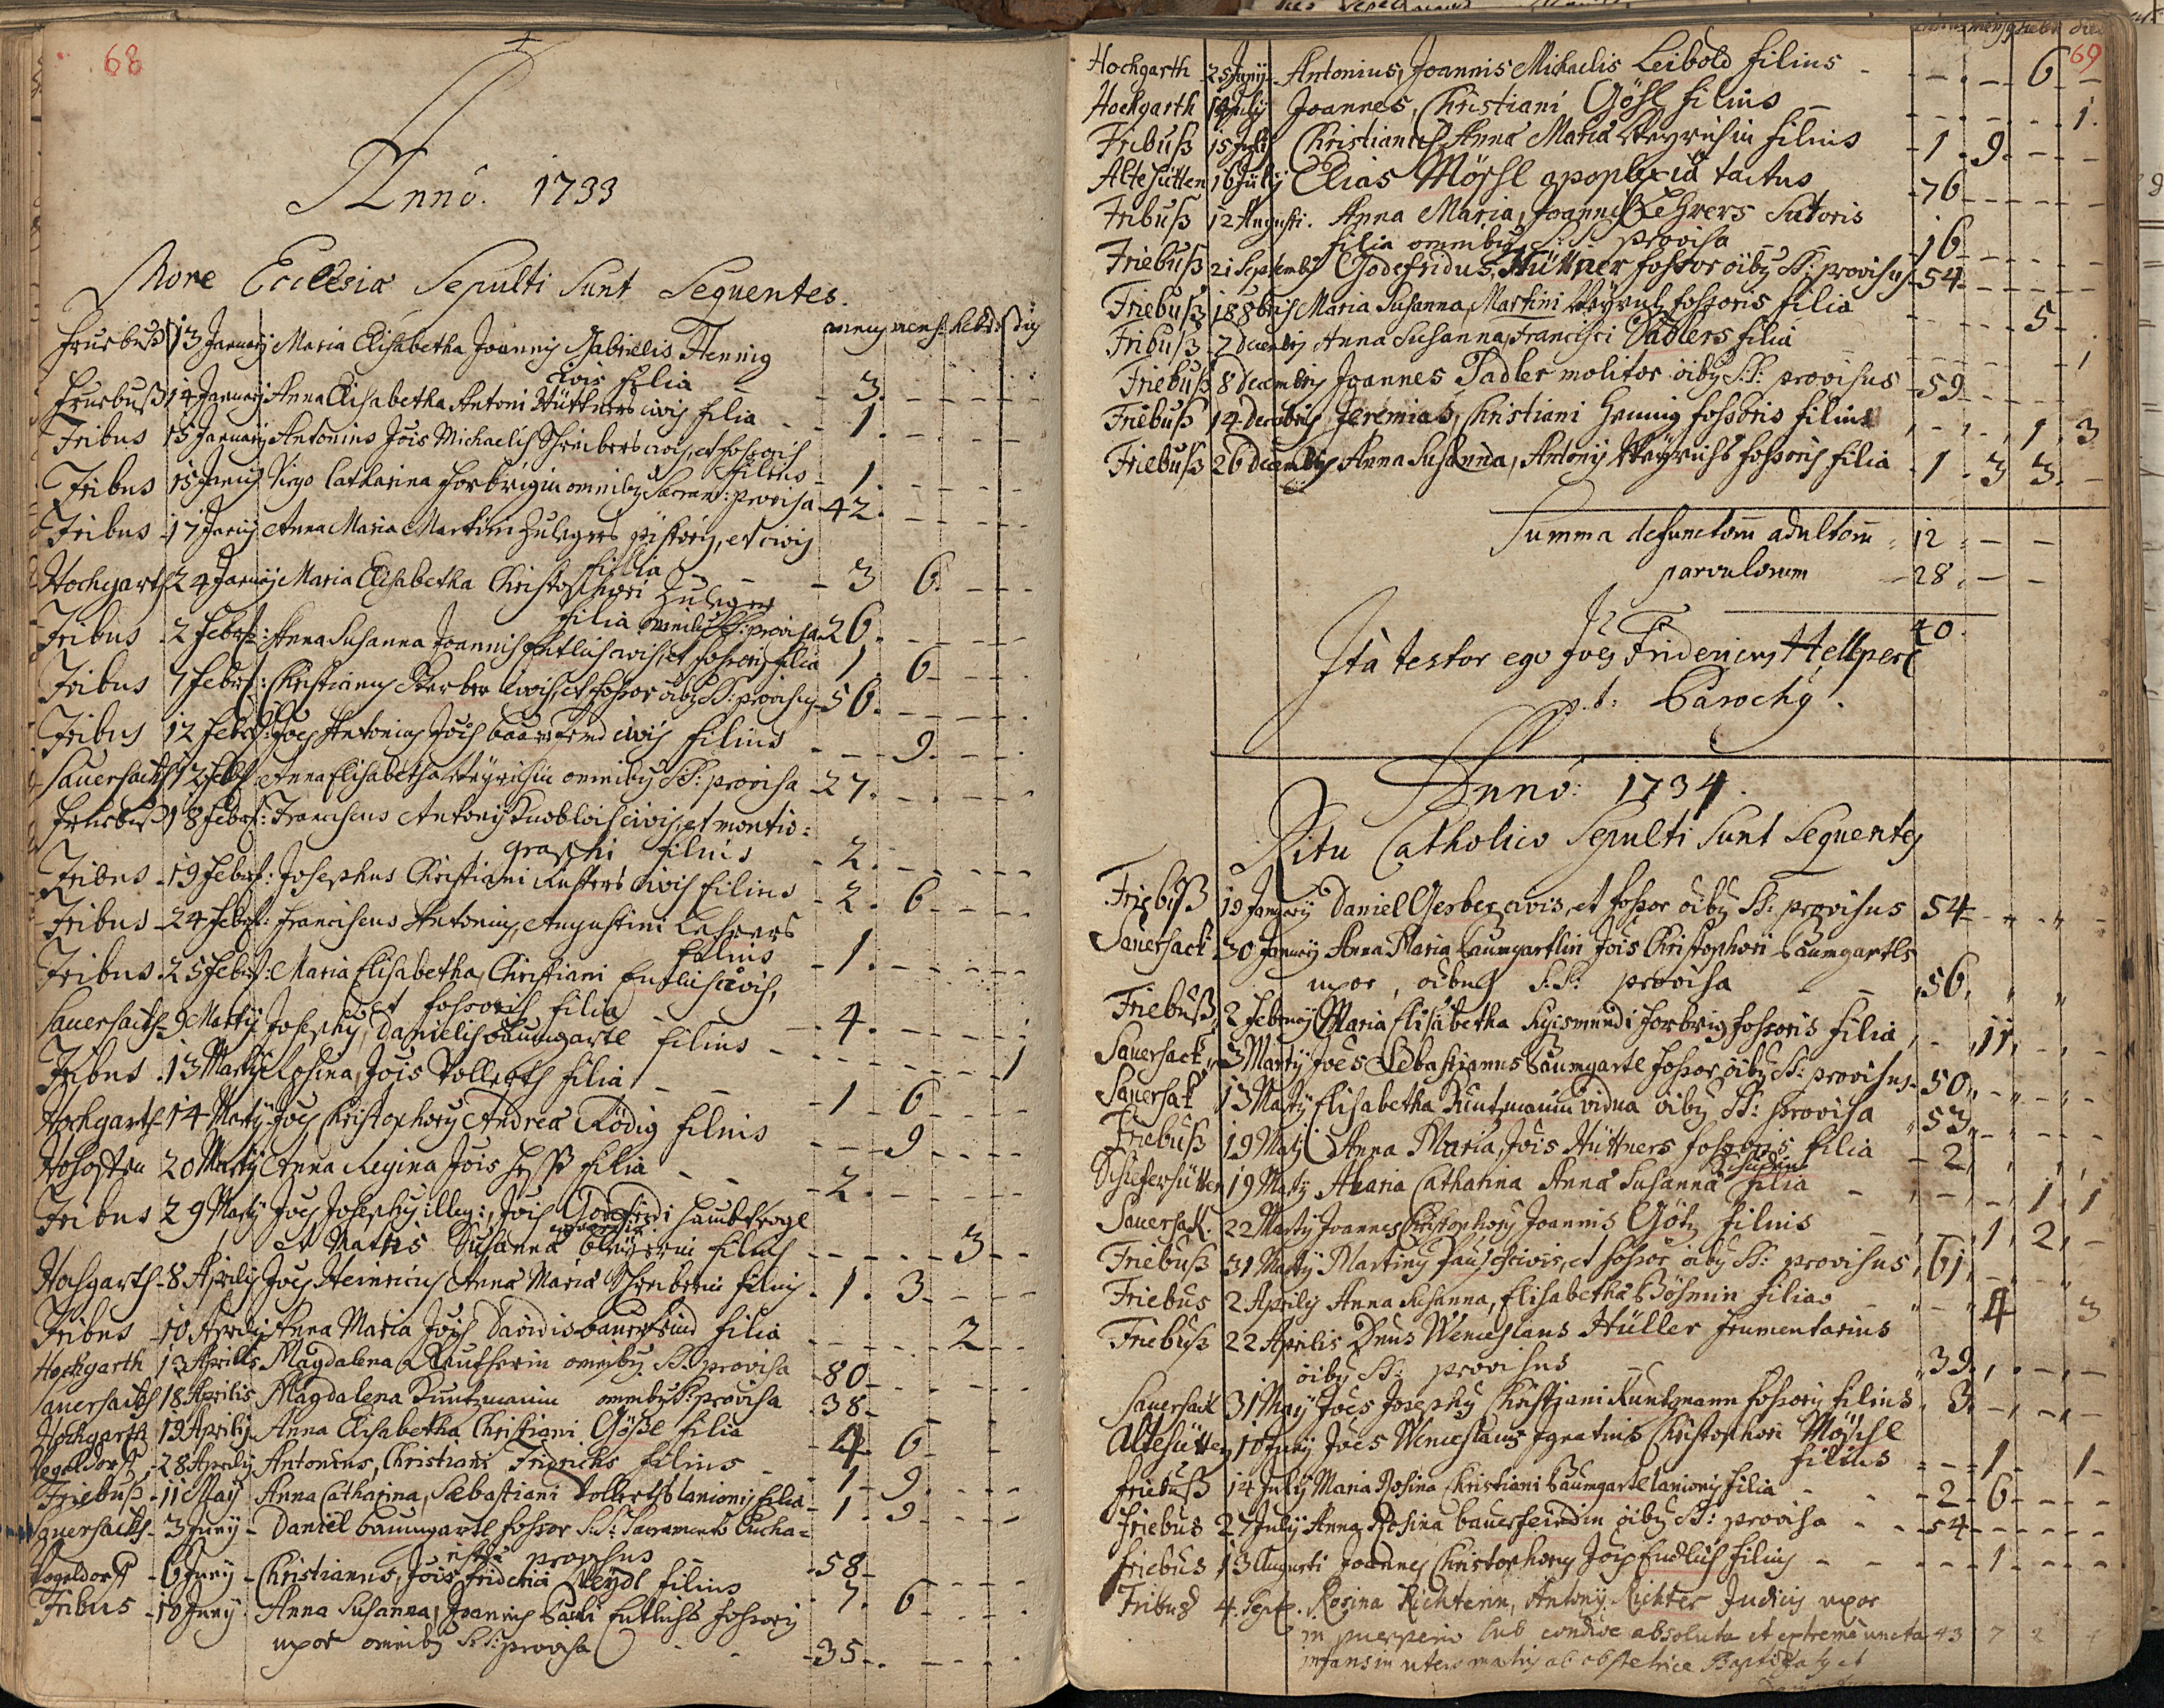 68
Anno. 1733
More Ecclesiæ Sepulti Sunt Sequentes.
annus mens: hebd: dies
Fruebuß 13 Januarij Maria Elisabetha Joannis Gabrielis Hennig
civis filia - 3.
Fruebuß 14 Januarij Anna Elisabetha Antoni Hüttners civis filia - 1.
Fribus 15 Januarij Antonius Jois Michaelis Schreibers civis, et fossoris
filius - 1.
Fribus 15 Janrij Virgo Catharina Forbrigin omnibq Sacram: provisa - 42.
Fribus 17 Janrij Anna Maria Martini Zulegers pistoris, et civis
filia - 3 6.
Hochgarth 24 Januarij Maria Elisabetha Christophori Zuleger
filia omnibus SS: provisa - 26.
Fribus 2 Febr: Anna Susanna Joannis Entlich civis, et fossoris filia 1 6
Fribus 7 Febr: Christianus civis, et fossor oibq SS: provisus - 56.
Fribus 12 Febr: Joes Antonius Jois baursfeind civis filius - 9.
Sauersackh 12 Febr: Anna Elisabetha Weyrichin omnibq SS: provisa - 27.
Fruebuß 18 Febr: Franciscus Antonij Knobloch civis, et montis=
graphi filius - 2.
Fribus 19 Febr: Josephus Christiani civis filius - 2. 6
Fribus 24 Febr: Franciscus Antonius, Augustini Lehrers
filius - 1.
Fribus 25 Febr: Maria Elisabetha, Christiani Entlich civis,
et fossoris filia - 4.
Sauersackh 9 Martij Josephus, Danielis Baumgartl filius - 1
Fribus 13 Martij Rosina, Jois Vollerths filia - 1 6
Hochgarth 14 Martij Joes Christophorus Andreæ Rödig filius - 9
20 Martij Anna Regina Jois Heß filia - 2.
Fribus 29 Martij Joes Josephus illeg:, Jois Godefridi
et Matris Susanna filius - 3
Hochgarth 8 Aprilis Joes Heinricus Anna Maria Schreiberin filius - 1. 3
Fribus 10 Aprilis Anna Maria Jois Davidis baursfeind filia - 2
Hochgarth 13 Aprilis Magdalena Reutherin omnibq SS: provisa - 80
Sauersackh 18 Aprilis Magdalena Kuntzmanin omnibq SS: provisa - 38
Hochgarth 19 Aprilis Anna Elisabetha Christiani Gößl filia - 4 6
Vogeldorff 28 Aprilis Antonius, Christiani Fridrichs filius - 1 9.
Friebuß 11 Maij Anna Catharina, Sebastiani Vollerths lanionis filia - 1. 9
Sauersackh 3 Junij Daniel baumgartl fossor SS: Sacramento Eucha=
ristiæ provisus - 58
Vogeldorff 6 Junij Christianus, Jois Friderici Weydl filius - 7. 6
Fribus 10 Junij Anna Susanna, Joannis Pauli Entlichs fossoris
uxor omnibq SS: provisa - 35
69
Hochgarth 25 Junij Antonius, Joannis Michaelis Leibold filius - 6
Hochgarth Julij Joannes, Christiani Gößl filius - 1.
Fribuß 15 Julij Christianus Anna Maria Weyrichin filius - 1. 9.
Altehütten 16 Julij Elias Möschl apoplexia tactus - 76
Fribuß 12 Augusti. Anna Maria, Joannis Lehrers Sutoris
filia omnibq S: S: provisa - 16
Friebuß 21 Septembris Godefridus Hüttner fossor oibq SS: provisus - 54
Friebuß 18 8bris Maria Susanna, Martini fossoris filia - 5
Fribuß 7 decembris Anna Susanna, Francisci Sadlers filia - 1
Friebuß 8 decembris Joannes Sadler molitor oibq SS: provisus - 59
Friebuß 14 decembris Jeremias, Christiani Hennig fossoris filius - 1. 3
Friebuß 26 decembris Anna Susanna, Antonij Weyrichs fossoris filia - 1. 3 3.
Summa defunctorum adultorum - 12
parvulorum - 28.
40.
Ità testor ego Joes Fridericus
p.t: Parochq.
Annó: 1734.
Ritu Catholico Sepulti Sunt Sequentes
Friebuß 19 January Daniel Gerber civis, et fossor oibq SS: provisus 54
Sauersack 30 January Anna Maria Baumgartlin Jois Christophori Baumgartls
uxor, oibus S:S: provisa - 56
Friebuß 2 Februarij Maria Elisabetha Sigismundi Forbrig fossoris filia - 11
Sauersack 3 Martij Joes Sebastianus Baumgartl fossor, oibq SS: provisus - 50
Sauersak 13 Martij Elisabetha Kuntzmanin vidua oibq SS: provisa 53
Friebuß 19 Martij Anna Maria, Jois Hüttners fossoris filia - 2
Schiferhütten 19 Martij Maria Catharina Anna Susanna
filia - 1 1
Sauersack. 22 Martij Joannes Christophorus Joannis Götz filius - 1 2
Friebuß 31 Martij Martinus Pausch civis, et fossor oibq SS: provisus 61
Friebus 2 Aprilis Anna Susanna, Elisabetha Böhmin filia - 4 3
Friebuß 22 Aprilis Dnus Wenceslaus Hüller frumentarius
oibq SS: provisus - 39
Sauersack 31 Maij Joes Josephus Christiani Kuntzmann fossoris filius 3
Altehütten 10 Junij Joes Wenceslaus Ignatius Christophori Möschl
filius - 1 1
Friebuß 14 Julij Maria Rosina Christiani Baumgartl lanionis filia - 2 6
Friebus 27 July Anna Rosina bauersfeindin oibq SS: provisa - 54
Friebus 13 Augusti Joannes Christophorus Jois Endlich filius - 1
Fribus 4. Sept. Rosina Richterin, Antonij Richter Judicis uxor
in puerperio sub conditione absoluta et extreme uncta 43 7 2
infans in utero matris ab obstetrice Baptizatq et